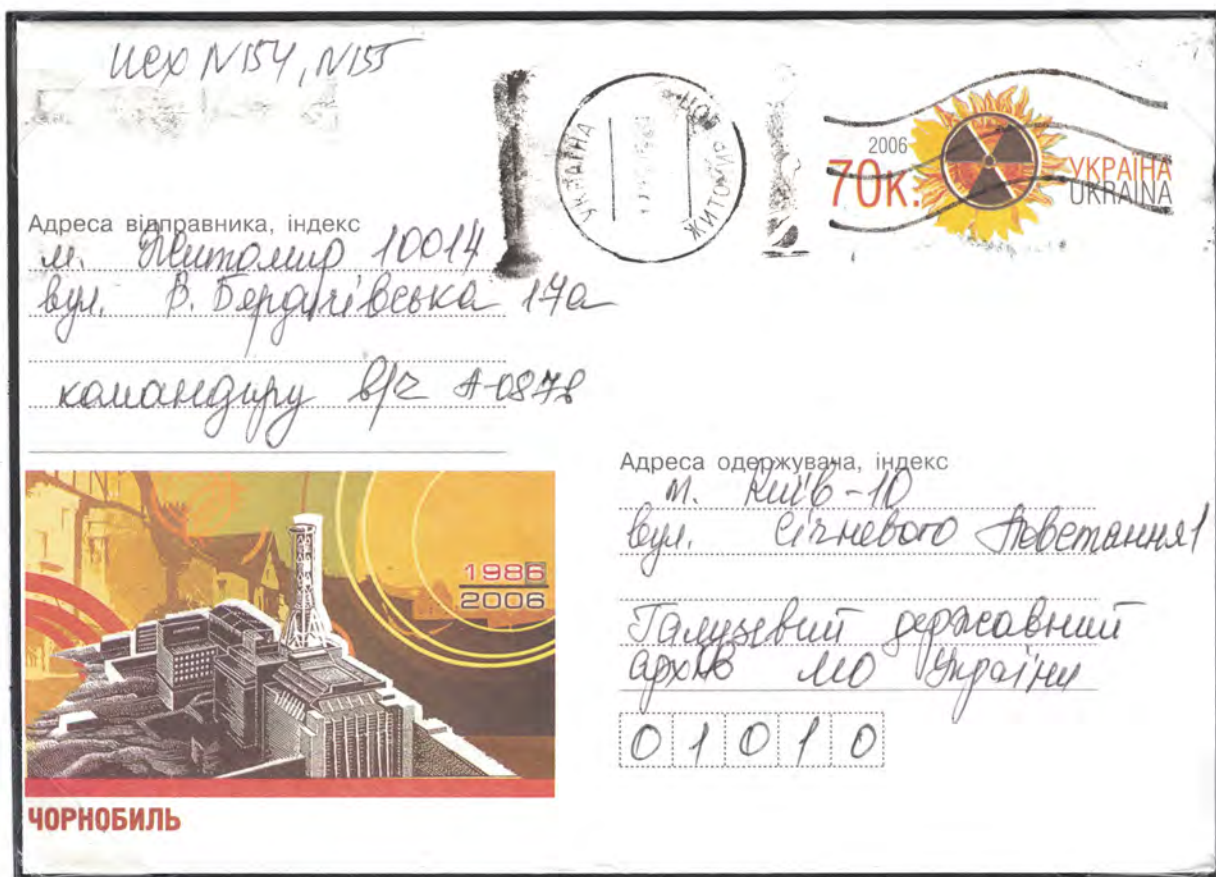 исх N154, N155
УКРАЇНА
ЖИТОМИР ЦОП
2006
70к.
УКРАЇНА
UKRAINA
Адреса відправника, індекс
м. Житомир 10014
вул. В. Бердичівська 17а
командиру в/ч А-0878
1986
2006
ЧОРНОБИЛЬ
Адреса одержувача, індекс
м. Київ-10
вул. Січневого Повстання 1
Галузевий державний
архів МО України
01010